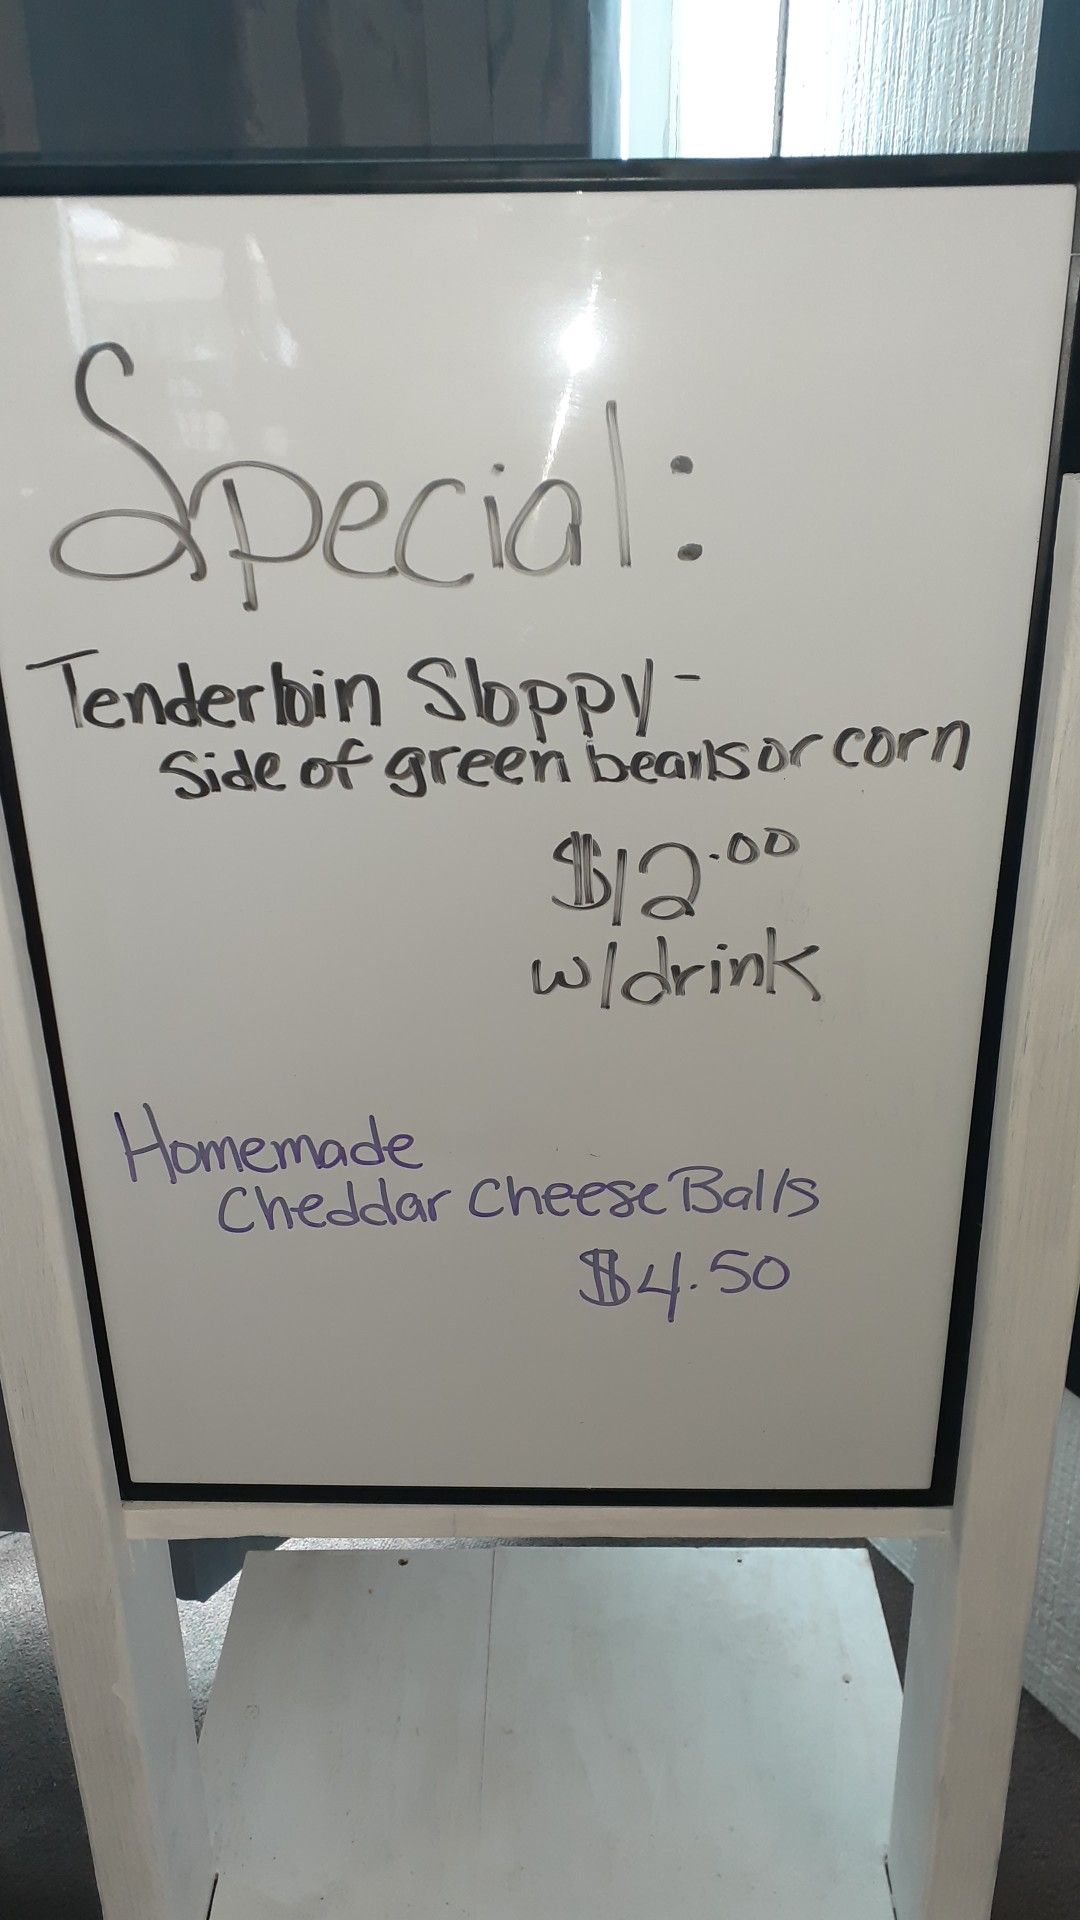 Special:
Tenderloin Sloppy-
side of green beans or corn
$12.00
w/drink
Homemade
Cheddar Cheese Balls
$4.50